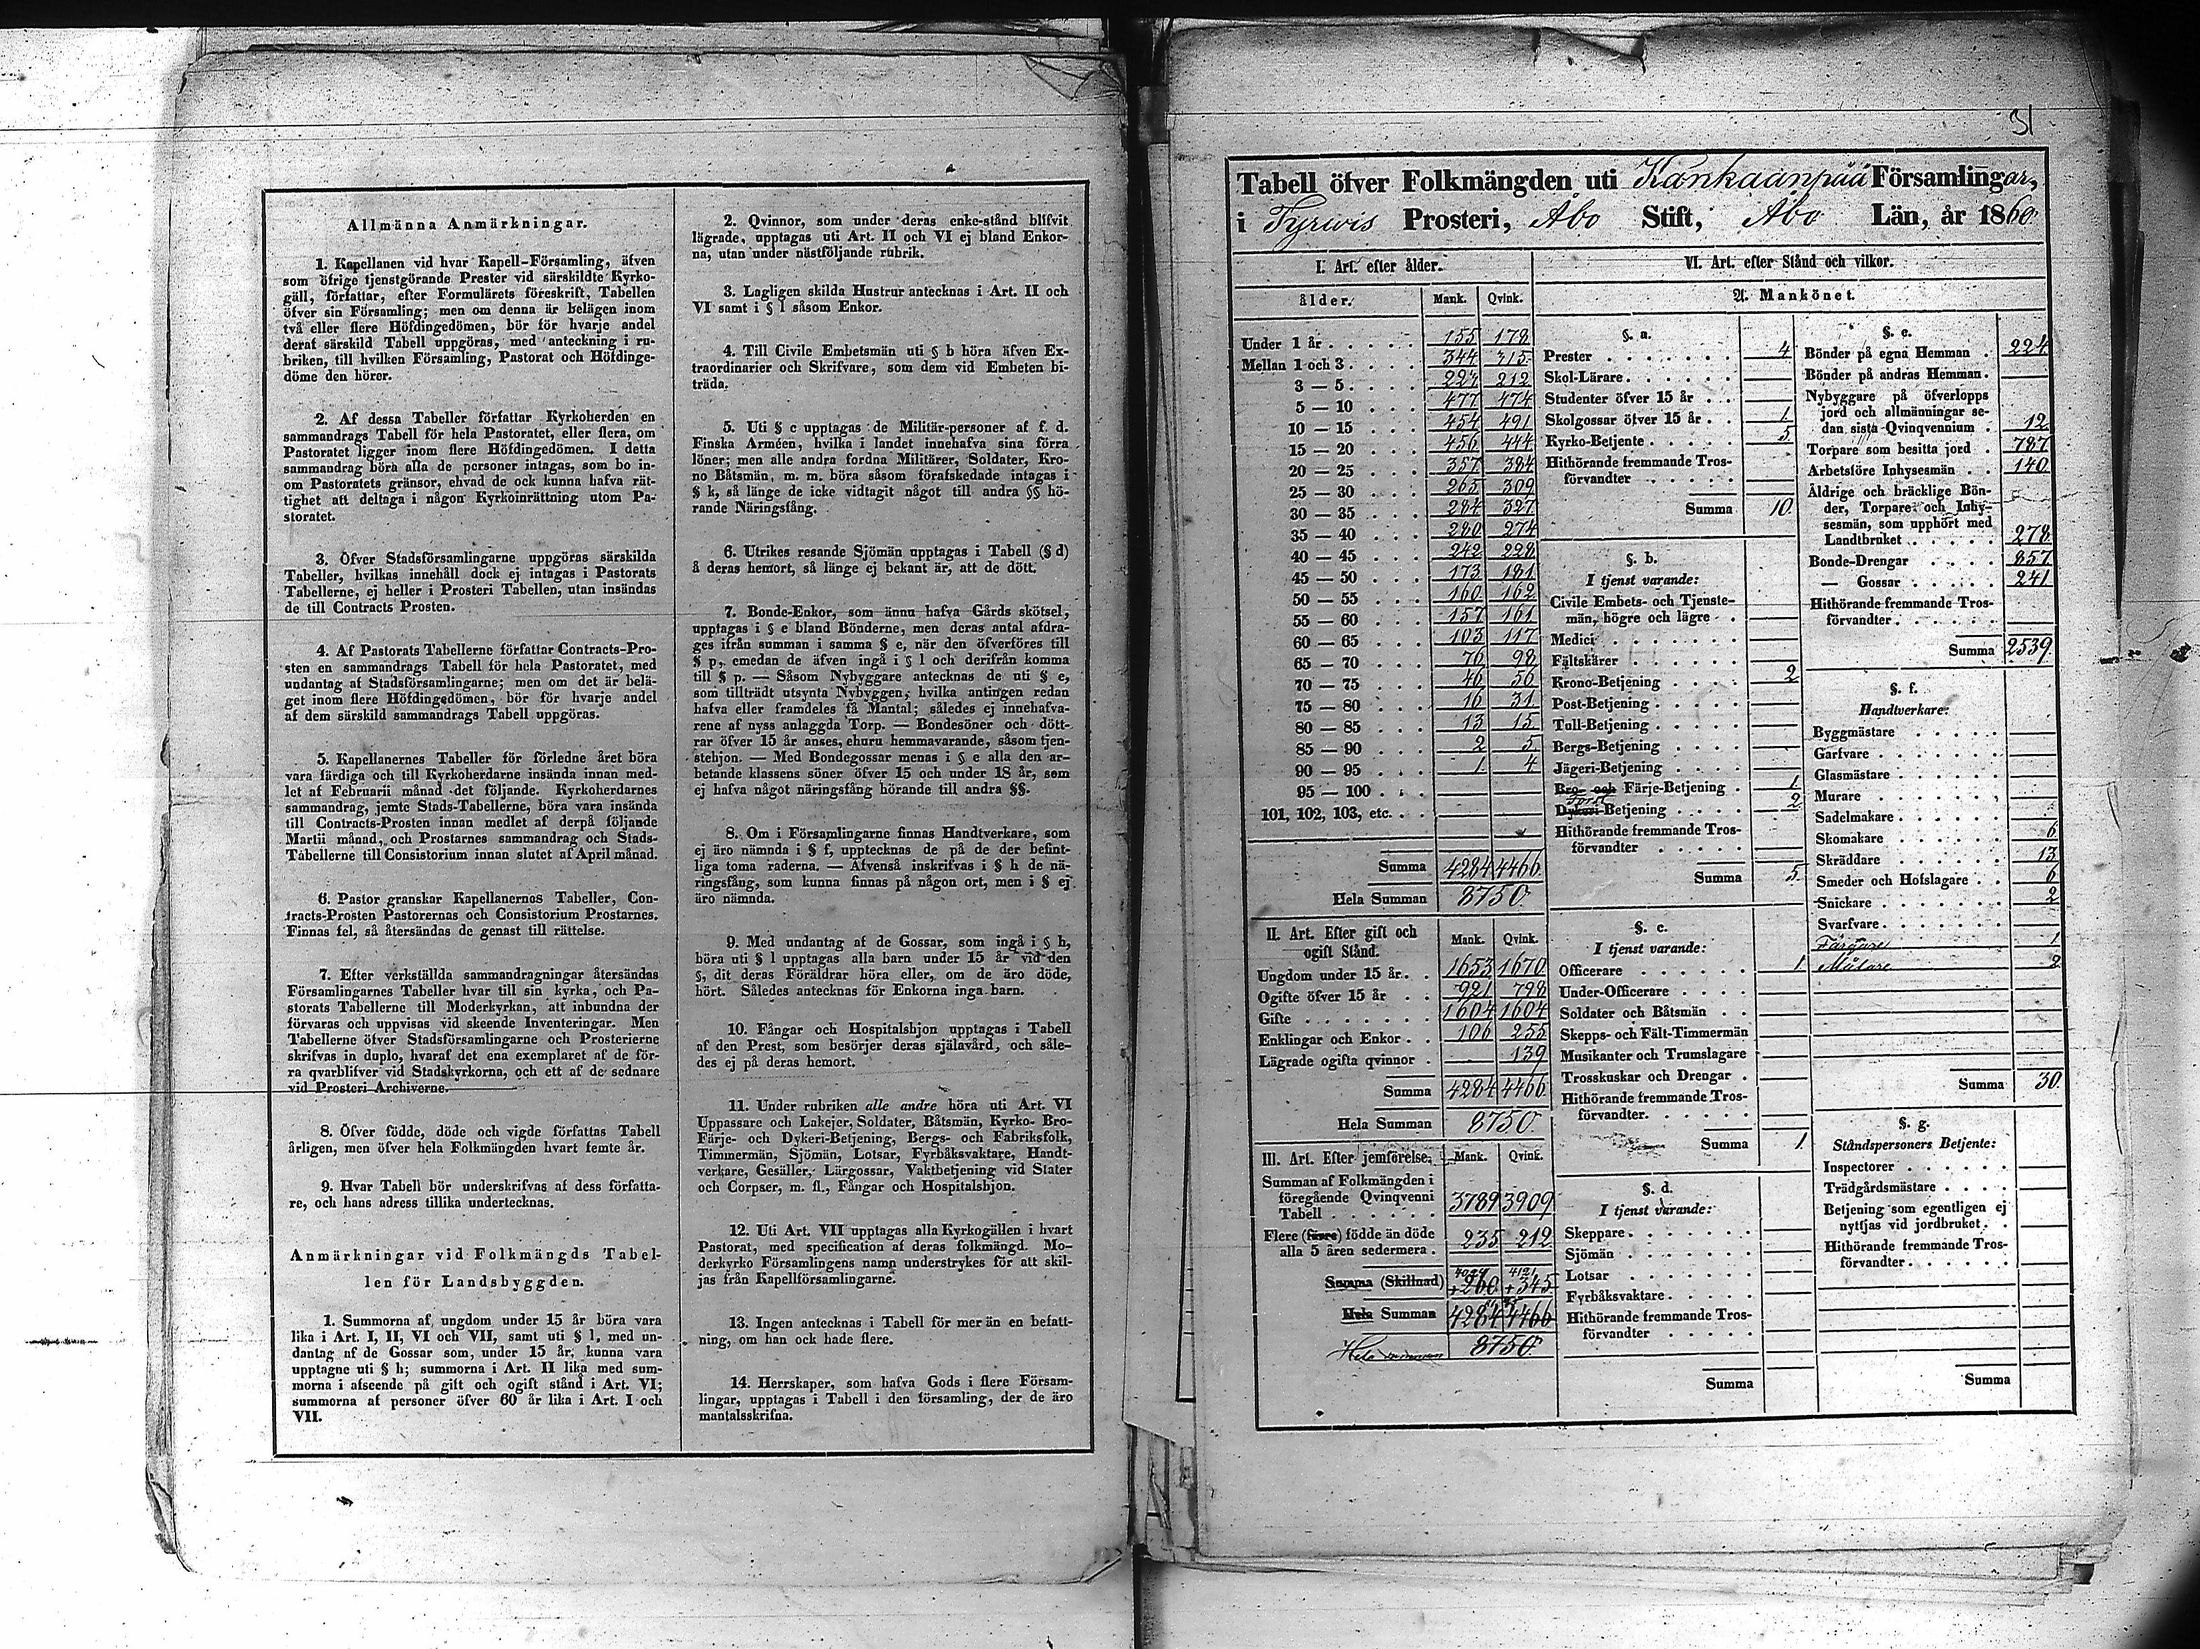 Allmänna Anmärkningar.
1. Kapellanen vid hvar Kapell-Församling, äfven
som öfrige tjenstgörande Prester vid särskildte Kyrko-
gäll, författar, efter Formulärets föreskrift, Tabellen
öfver sin Församling; men om denna är belägen inom
två eller flere Höfdingedömen, bör för hvarje andel
deraf särskild Tabell uppgöras, med anteckning i ru-
briken, till hvilken Församling, Pastorat och Höfdinge-
döme den hörer.
2. Af dessa Tabeller författar Kyrkoherden en
sammandrags Tabell för hela Pastoratet, eller flera, om
Pastoratet ligger inom flere Höfdingedömen. I detta
sammandrag böra alla de personer intagas, som bo in-
om Pastoratets gränsor, ehvad de ock kunna hafva rät-
tighet att deltaga i någon Kyrkoinrättning utom Pa-
storatet.
3. Öfver Stadsförsamlingarne uppgöras särskilda
Tabeller, hvilkas innehåll dock ej intagas i Pastorats
Tabellerne, ej heller i Prosteri Tabellen, utan insändas
de till Contracts Prosten.
4. Af Pastorats Tabellerne författar Contracts-Pro-
sten en sammandrags Tabell för hela Pastoratet, med
undantag af Stadsförsamlingarne; men om det är belä-
get inom flere Höfdingedömen, bör för hvarje andel
af dem särskild sammandrags Tabell uppgöras.
5. Kapellanernes Tabeller för förledne året böra
vara färdiga och till Kyrkoherdarne insända innan med-
let af Februarii månad det följande. Kyrkoherdarnes
sammandrag, jemte Stads-Tabellerne, böra vara insända
till Contracts-Prosten innan medlet af derpå följande
Martii månad, och Prostarnes sammandrag och Stads-
Tabellerne till Consistorium innan slutet af April månad.
6. Pastor granskar Kapellanernos Tabeller, Con-
tracts-Prosten Pastorernas och Consistorium Prostarnes.
Finnas fel, så återsändas de genast till rättelse.
7. Efter verkställda sammandragningar återsändas
Församlingarnes Tabeller hvar till sin kyrka, och Pa-
storats Tabellerne till Moderkyrkan, att inbundna der
förvaras och uppvisas vid skeende Inventeringar. Men
Tabellerne öfver Stadsförsamlingarne och Prosterierne
skrifvas in duplo, hvaraf det ena exemplaret af de för-
ra qvarblifver vid Stadskyrkorna, och ett af de sednare
vid Prosteri Archiverne.
8. Öfver födde, döde och vigde författas Tabell
årligen, men öfver hela Folkmängden hvart femte år.
9. Hvar Tabell bör underskrifvas af dess författa-
re, och hans adress tillika undertecknas.
Anmärkningar vid Folkmängds Tabel-
len för Landsbyggden.
1. Summorna af ungdom under 15 år böra vara
lika i Art. I, II, VI och VII, samt uti § l, med un-
dantag af de Gossar som, under 15 år, kunna vara
upptagne uti § h; summorna i Art. II lika med sum-
morna i afseende på gift och ogift stånd i Art. VI;
summorna af personer öfver 60 år lika i Art. I och
VII.
2. Qvinnor, som under deras enke-stånd blifvit
lägrade, upptagas uti Art. II och VI ej bland Enkor-
na, utan under nästföljande rubrik.
3. Lagligen skilda Hustrur antecknas i Art. II och
VI samt i § l såsom Enkor.
4. Till Civile Embetsmän uti § b höra äfven Ex-
traordinarier och Skrifvare, som dem vid Embeten bi-
träda.
5. Uti § c upptagas de Militär-personer af f. d.
Finska Arméen, hvilka i landet innehafva sina förra
löner; men alle andra fordna Militärer, Soldater, Kro-
no Båtsmän, m. m. böra såsom förafskedade intagas i
§ k, så länge de icke vidtagit något till andra §§ hö-
rande Näringsfång.
6. Utrikes resande Sjömän upptagas i Tabell (§ d)
å deras hemort, så länge ej bekant är, att de dött.
7. Bonde-Enkor, som ännu hafva Gårds skötsel,
upptagas i § e bland Bönderne, men deras antal afdra-
ges ifrån summan i samma § e, när den öfverföres till
§ p, emedan de äfven ingå i § l och derifrån komma
till § p. — Såsom Nybyggare antecknas de uti § e,
som tillträdt utsynta Nybyggen, hvilka antingen redan
hafva eller framdeles få Mantal; således ej innehafva-
rene af nyss anlaggda Torp. — Bondesöner och dött-
rar öfver 15 år anses, ehuru hemmavarande, såsom tjen-
stehjon. — Med Bondegossar menas i § e alla den ar-
betande klassens söner öfver 15 och under 18 år, som
ej hafva något näringsfång hörande till andra §§.
8. Om i Församlingarne finnas Handtverkare, som
ej äro nämnda i § f, upptecknas de på de der befint-
liga toma raderna. — Äfvenså inskrifvas i § h de nä-
ringsfång, som kunna finnas på någon ort, men i § ej
äro nämnda.
9. Med undantag af de Gossar, som ingå i § h,
böra uti § l upptagas alla barn under 15 år vid den
§, dit deras Föräldrar höra eller, om de äro döde,
hört. Således antecknas för Enkorna inga barn.
10. Fångar och Hospitalshjon upptagas i Tabell
af den Prest, som besörjer deras själavård, och såle-
des ej på deras hemort.
11. Under rubriken alle andre höra uti Art. VI
Uppassare och Lakejer, Soldater, Båtsmän, Kyrko- Bro-
Färje- och Dykeri-Betjening, Bergs- och Fabriksfolk,
Timmermän, Sjömän, Lotsar, Fyrbåksvaktare, Handt-
verkare, Gesäller, Lärgossar, Vaktbetjening vid Slater
och Corpser, m. fl., Fångar och Hospitalshjon.
12. Uti Art. VII upptagas alla Kyrkogällen i hvart
Pastorat, med specification af deras folkmängd. Mo-
derkyrko Församlingens namn understrykes för att skil-
jas från Kapellförsamlingarne.
13. Ingen antecknas i Tabell för mer än en befatt-
ning, om han ock hade flere.
14. Herrskaper, som hafva Gods i flere Försam-
lingar, upptagas i Tabell i den församling, der de äro
mantalsskrifna.
31
Tabell öfver Folkmängden uti Kankaanpää Församlingar,
i Tyrwis Prosteri, Åbo Stift, Åbo Län, år 1860.
I. Art. efter ålder.
ålder. Mank. Qvink.
Under 1 år 155 178
Mellan 1 och 3 344 315
3 — 5 227 212
5 — 10 477 474
10 — 15 454 491
15 — 20 456 444
20 — 25 357 384
25 — 30 265 309
30 — 35 284 327
35 — 40 280 274
40 — 45 242 228
45 — 50 173 181
50 — 55 160 162
55 — 60 157 161
60 — 65 103 117
65 — 70 76 98
70 — 75 46 56
75 — 80 16 31
80 — 85 13 15
85 — 90 2 5
90 — 95 1 4
95 — 100
101, 102, 103, etc.
Summa 4284 4466
Hela Summan 8750
II. Art. Efter gift och
ogift Stånd. Mank. Qvink.
Ungdom under 15 år 1653 1670
Ogifte öfver 15 år 921 798
Gifte 1604 1604
Enklingar och Enkor 106 255
Lägrade ogifta qvinnor 139
Summa 4284 4466
Hela Summan 8750
III. Art. Efter jemförelse. Mank. Qvink.
Summan af Folkmängden i
föregående Qvinqvenni
Tabell 3789 3909
Flere (färre) födde än döde
alla 5 åren sedermera 235 212
4024 4121
Summa (Skillnad) +260 +345
Hela Summan 4284 4466
Hela summan 8750
VI. Art. efter Stånd och vilkor.
A. Mankönet.
§. a.
Prester 4
Skol-Lärare
Studenter öfver 15 år
Skolgossar öfver 15 år 1
Kyrko-Betjente 5
Hithörande fremmande Tros-
förvandter
Summa 10
§. b.
I tjenst varande:
Civile Embets- och Tjenste-
män, högre och lägre
Medici
Fältskärer
Krono-Betjening 2
Post-Betjening
Tull-Betjening
Bergs-Betjening
Jägeri-Betjening
Bro- och Färje-Betjening 1
Forst
Dykeri-Betjening 2
Hithörande fremmande Tros-
förvandter
Summa 5
§. c.
I tjenst varande:
Officerare 1
Under-Officerare
Soldater och Båtsmän
Skepps- och Fält-Timmermän
Musikanter och Trumslagare
Trosskuskar och Drengar
Hithörande fremmande Tros-
förvandter
Summa 1
§. d.
I tjenst varande:
Skeppare
Sjömän
Lotsar
Fyrbåksvaktare
Hithörande fremmande Tros-
förvandter
Summa
§. e.
Bönder på egna Hemman 224
Bönder på andras Hemman
Nybyggare på öfverlopps
jord och allmänningar se-
dan sista Qvinqvennium 12
Torpare som besitta jord 787
Arbetsföre Inhysesmän 140
Åldrige och bräcklige Bön-
der, Torpare och Inhy-
sesmän, som upphört med
Landtbruket 278
Bonde-Drengar 857
— Gossar 241
Hithörande fremmande Tros-
förvandter
Summa 2539
§. f.
Handtverkare:
Byggmästare
Garfvare
Glasmästare
Murare
Sadelmakare
Skomakare 6
Skräddare 13
Smeder och Hofslagare 6
Snickare 2
Svarfvare
Färgare 1
Målare 2
Summa 30
§. g.
Ståndspersoners Betjente:
Inspectorer
Trädgårdsmästare
Betjening som egentligen ej
nyttjas vid jordbruket
Hithörande fremmande Tros-
förvandter
Summa